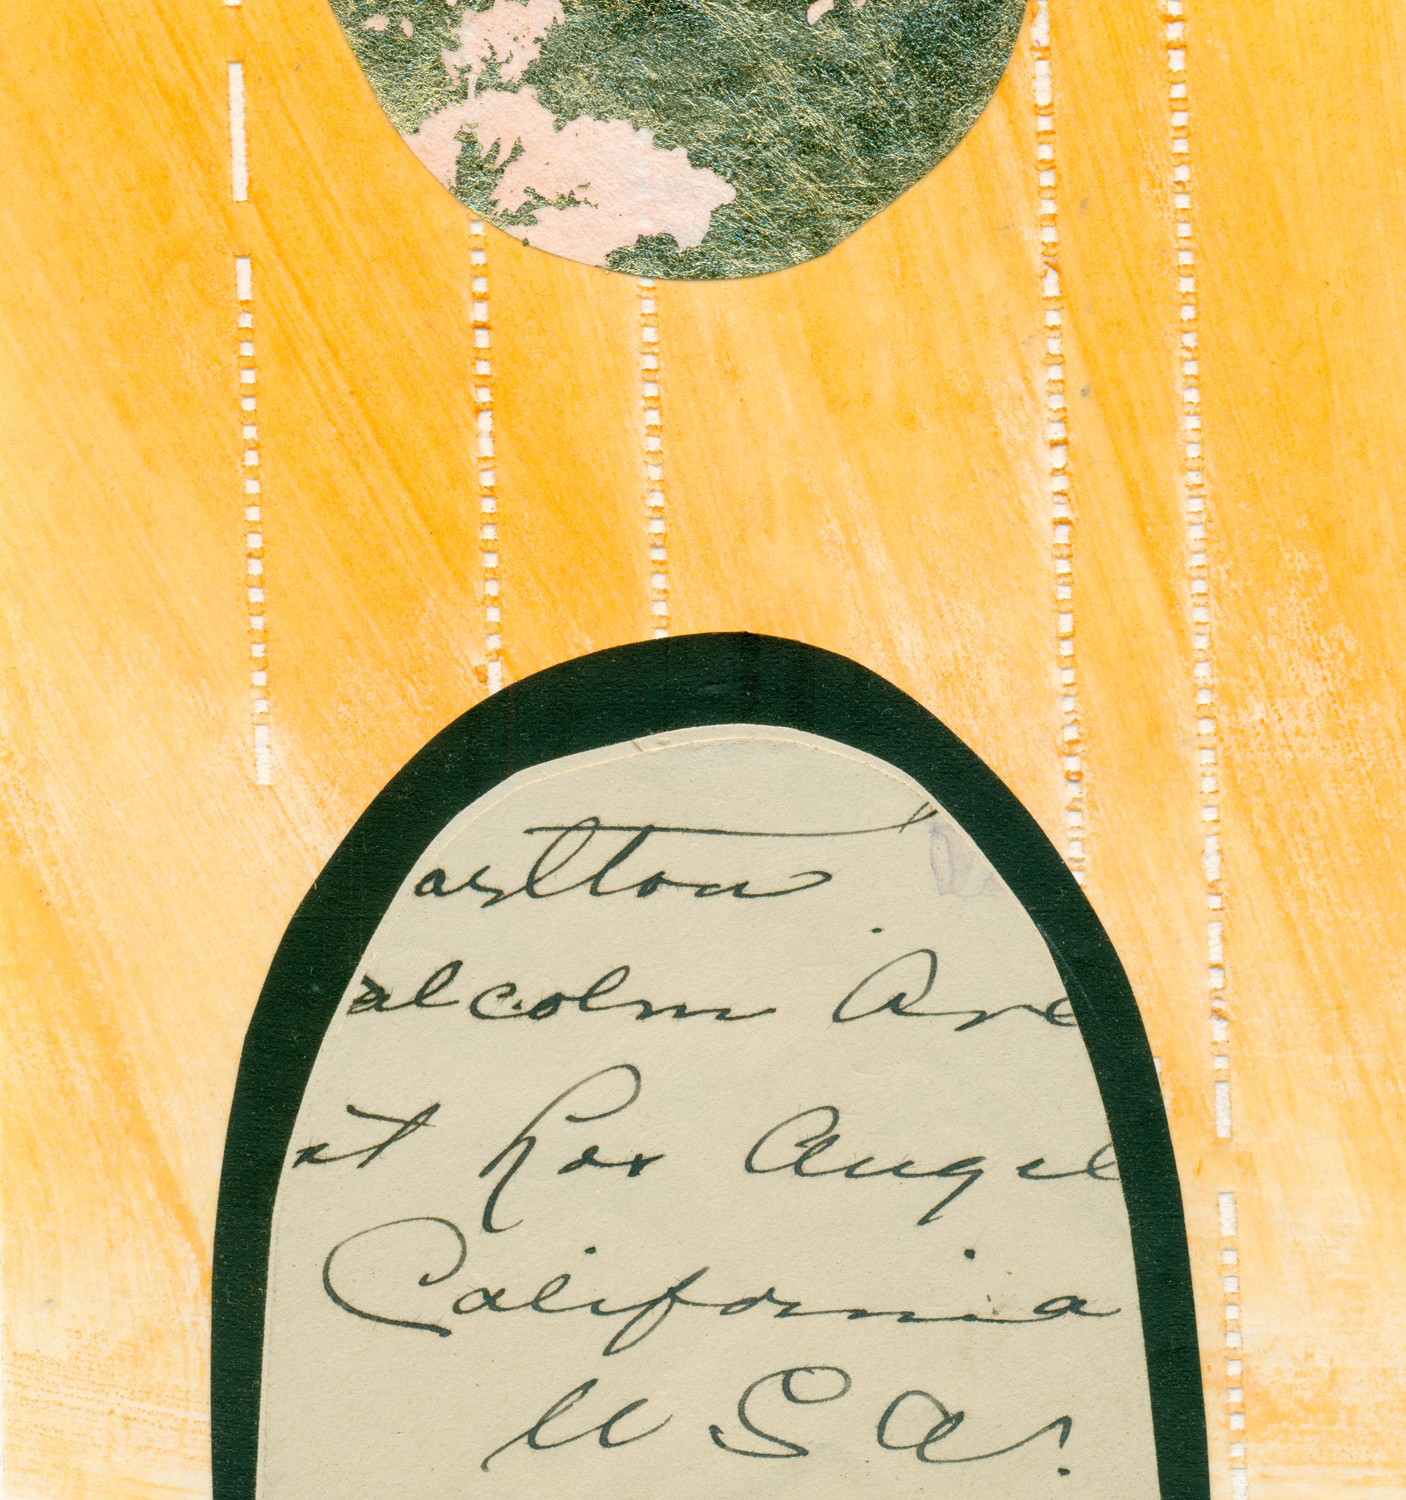 arlton
alcolm Ave
st Los Angel
California
U S A.